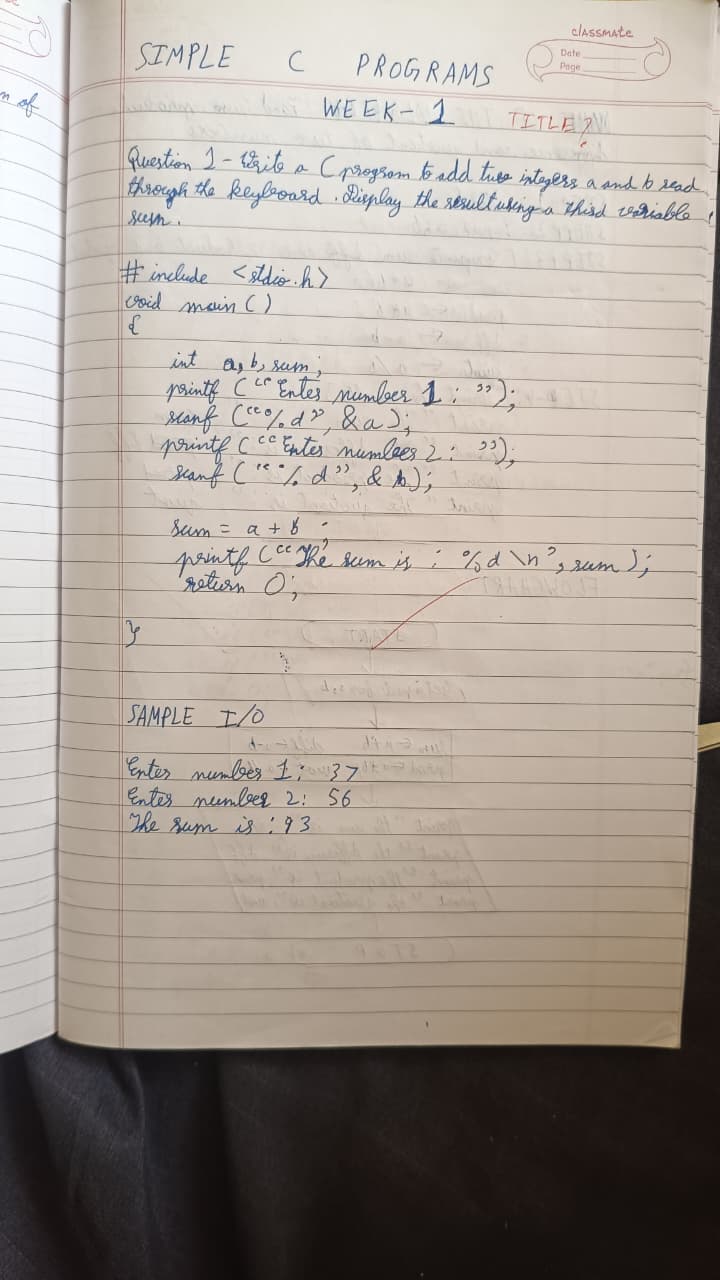 classmate
Date
Page
SIMPLE C PROGRAMS
WEEK-1 TITLE?
Question 1 - Write a C program to add two integers a and b read
through the keyboard. Display the result using a third variable
sum.
# include <stdio.h>
void main ()
{
int a, b, sum;
printf (“Enter number 1: ”);
scanf (“%d”, &a);
printf (“Enter number 2: ”);
scanf (“%d”, & b);
sum = a + b ;
printf (“The sum is : %d \n”, sum);
return 0;
}
SAMPLE I/O
Enter number 1: 37
Enter number 2: 56
The sum is : 93
n of